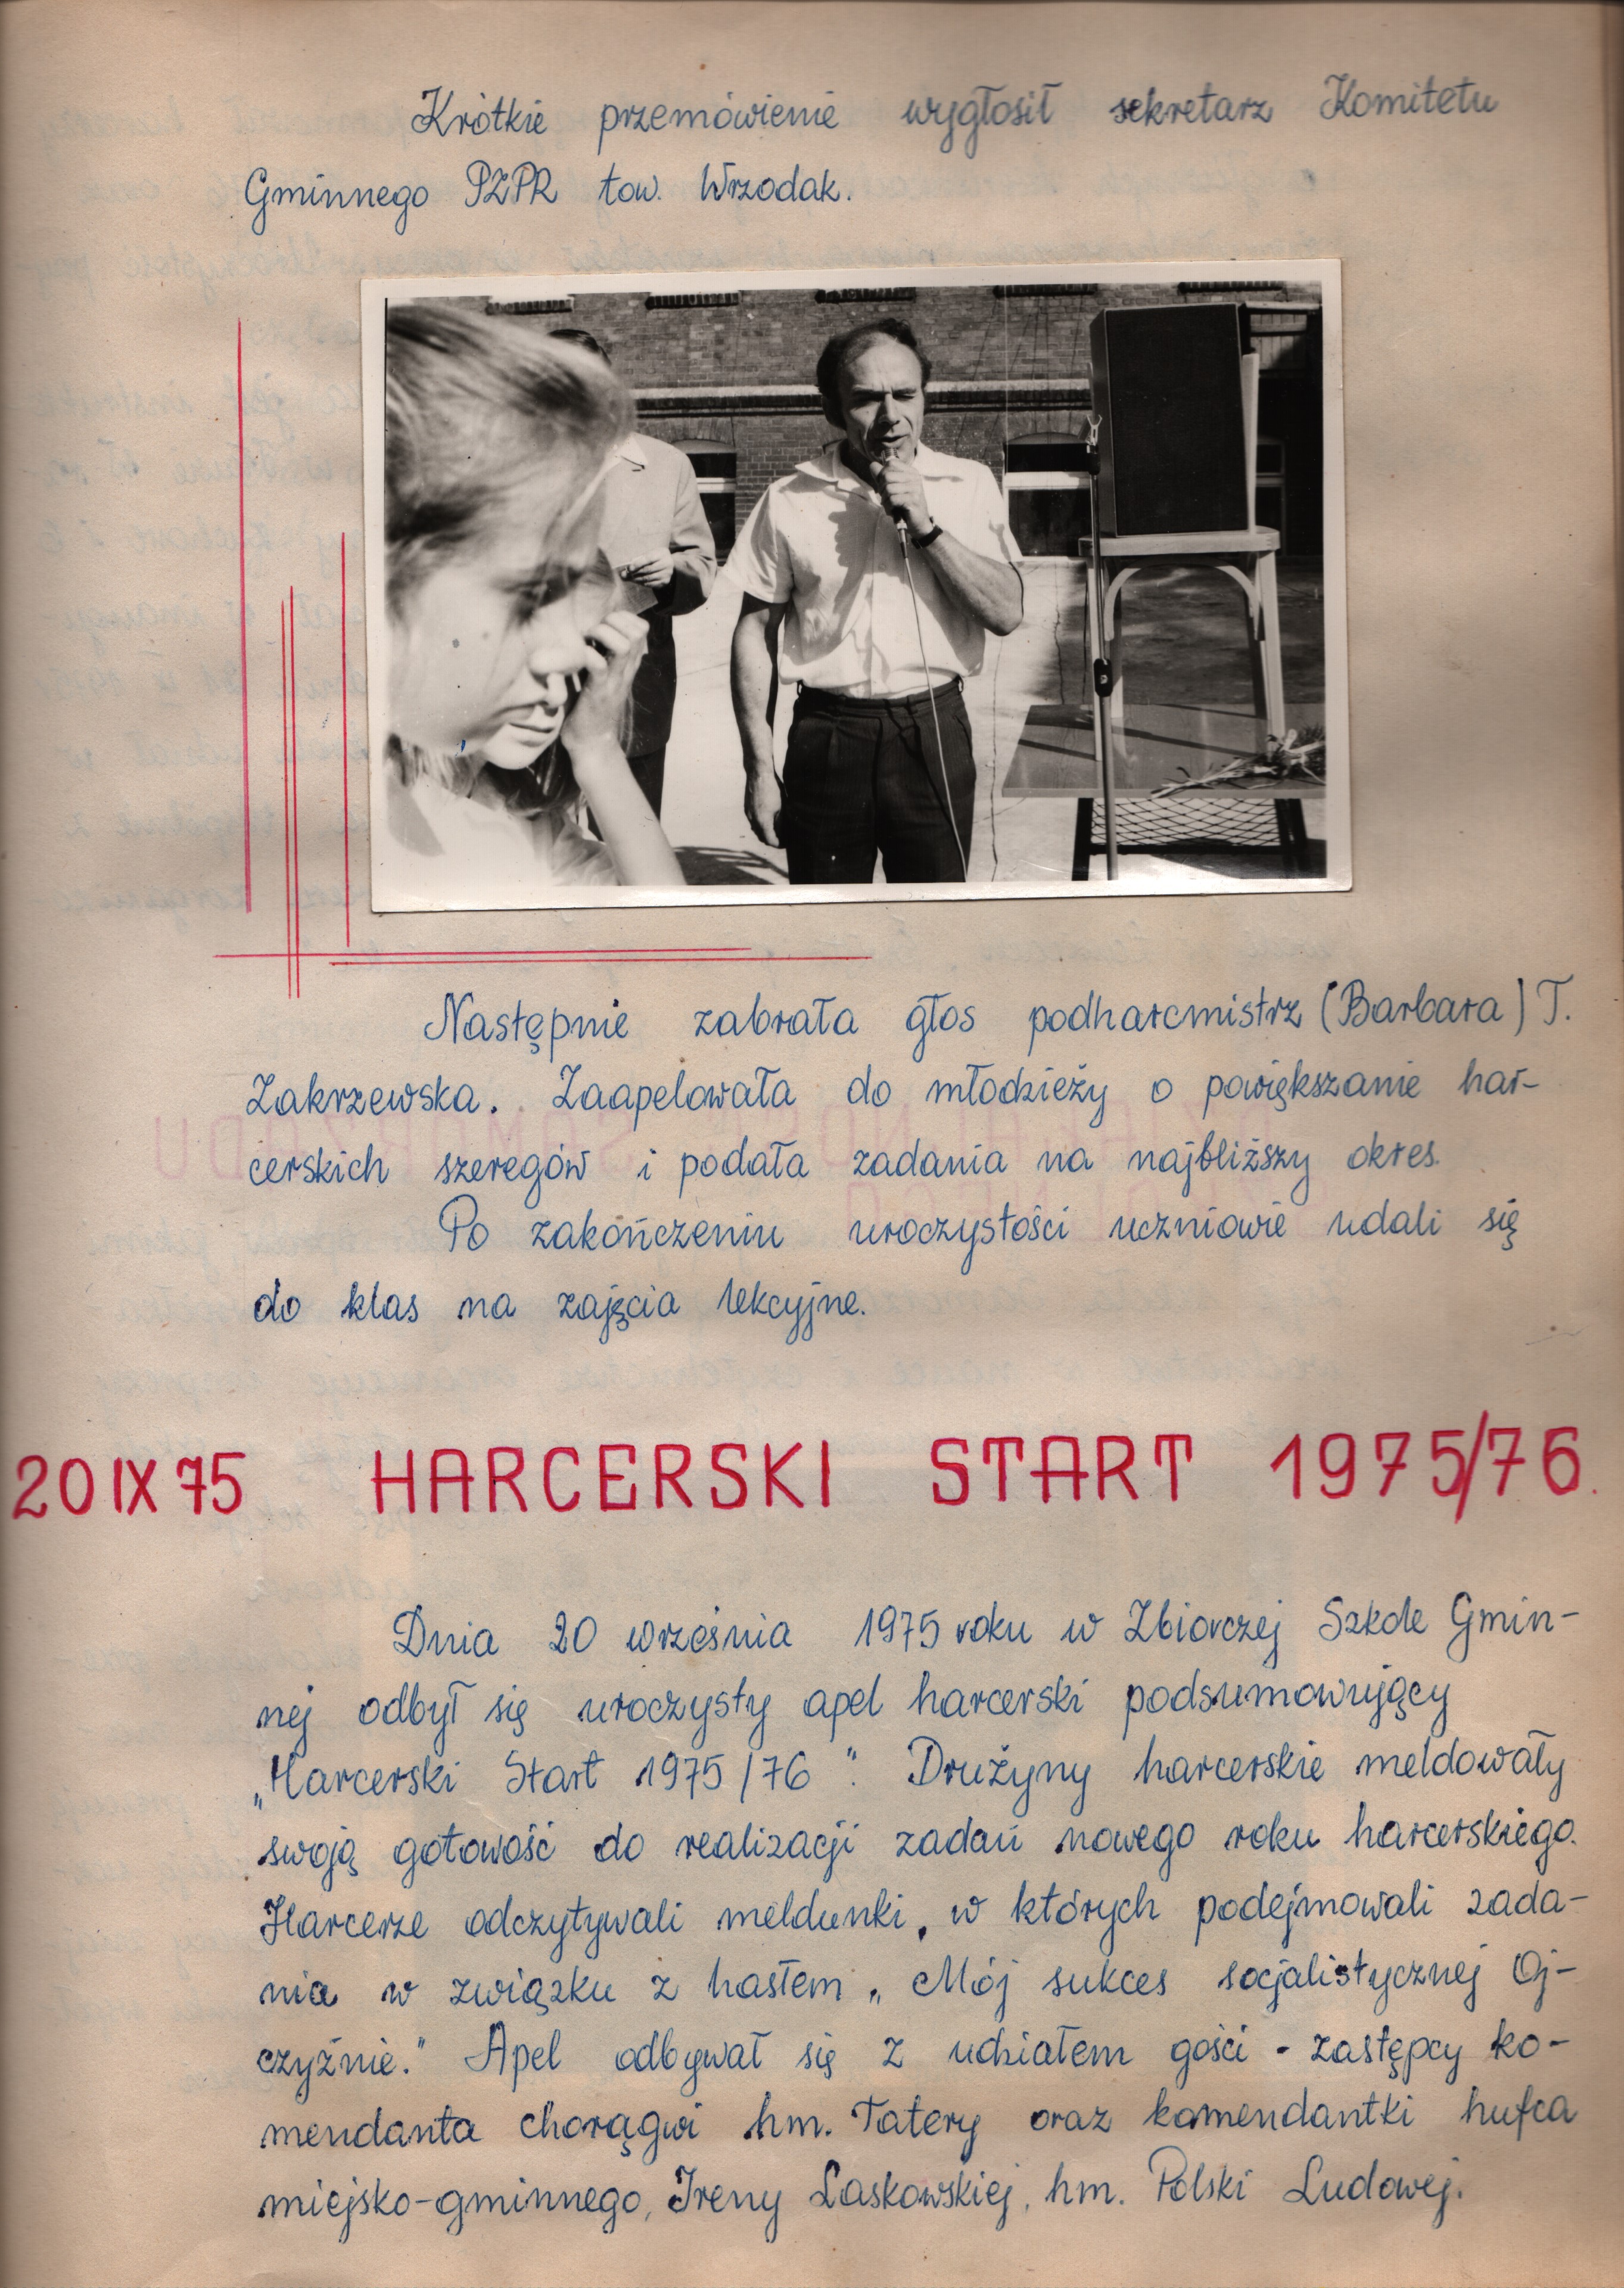 Krótkie przemówienie wygłosił sekretarz Komitetu
Gminnego PZPR tow. Wrzodak.
Następnie zabrała głos podharcmistrz (Barbara) T.
Zakrzewska. Zaapelowała do młodzieży o powiększanie har-
cerskich szeregów i podała zadania na najbliższy okres.
Po zakończeniu uroczystości uczniowie udali się
do klas na zajęcia lekcyjne.
20 IX 75 HARCERSKI START 1975/76.
Dnia 20 września 1975 roku w Zbiorczej Szkole Gmin-
nej odbył się uroczysty apel harcerski podsumowujący
„Harcerski Start 1975/76". Drużyny harcerskie meldowały
swoją gotowość do realizacji zadań nowego roku harcerskiego.
Harcerze odczytywali meldunki, w których podejmowali zada-
nia w związku z hasłem „Mój sukces socjalistycznej Oj-
czyźnie." Apel odbywał się z udziałem gości - zastępcy ko-
mendanta chorągwi hm. Tatery oraz komendantki hufca
miejsko-gminnego, Ireny Laskowskiej, hm. Polski Ludowej.